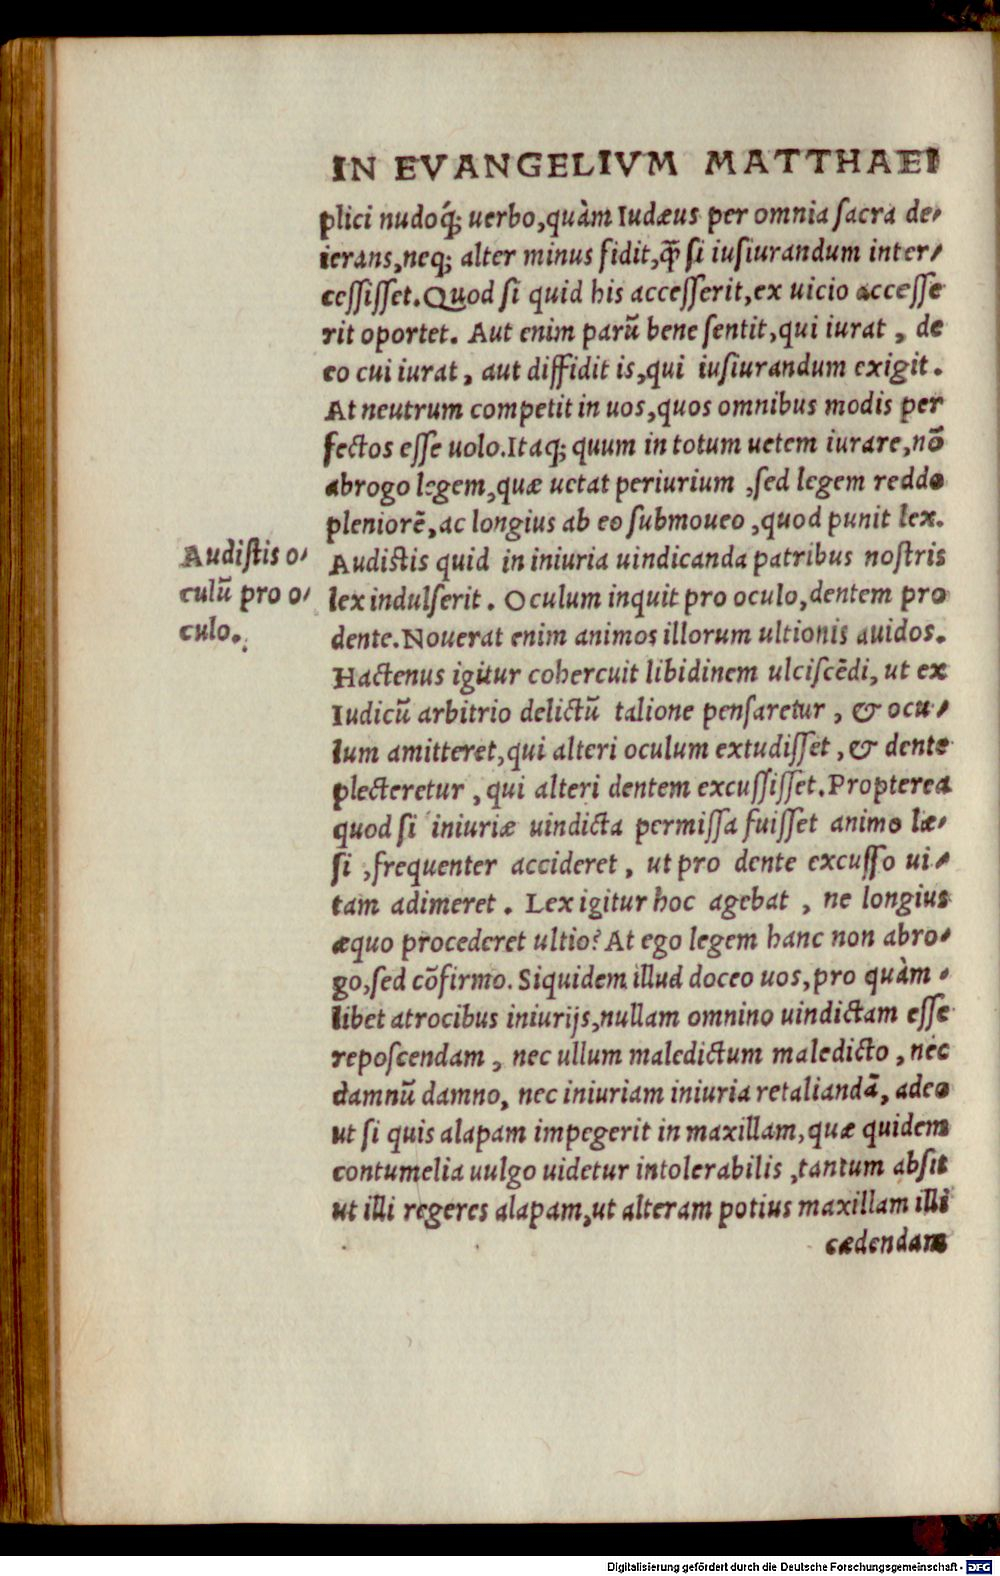 IN EVANGELIVM MATTHAEI
plici nudoq́; uerbo,quàm Iudæus per omnia ſacra de⸗
ierans,neq; alter minus fidit,q̃ ſi iuſiurandum inter⸗
ceſſiſſet.Quod ſi quid his acceſſerit,ex uicio acceſſe
rit oportet. Aut enim parũ bene ſentit,qui iurat, de
eo cui iurat, aut diffidit is,qui iuſiurandum exigit.
At neutrum competit in uos,quos omnibus modis per
fectos eſſe uolo.Itaq; quum in totum uetem iurare,nõ
abrogo legem,quæ uetat periurium ,ſed legem reddo
pleniorẽ,ac longius ab eo ſubmoueo,quod punit lex.
Audiſtis o⸗
culũ pro o⸗
culo.
Audiſtis quid in iniuria uindicanda patribus noſtris
lex indulſerit. Oculum inquit pro oculo,dentem pro
dente.Nouerat enim animos illorum ultionis auidos.
Hactenus igitur cohercuit libidinem ulciſcẽdi, ut ex
Iudicũ arbitrio delictũ talione penſaretur, & ocu⸗
lum amitteret,qui alteri oculum extudiſſet, & dente
plecteretur, qui alteri dentem excuſſiſſet.Propterea
quod ſi iniuriæ uindicta permiſſa fuiſſet animo læ⸗
ſi ,frequenter accideret, ut pro dente excuſſo ui⸗
tam adimeret. Lex igitur hoc agebat, ne longius
æquo procederet ultio? At ego legem hanc non abro⸗
go,ſed cõfirmo. Siquidem illud doceo uos,pro quàm⸗
libet atrocibus iniurijs,nullam omnino uindictam eſſe
repoſcendam, nec ullum maledictum maledicto, nec
damnũ damno, nec iniuriam iniuria retaliandã, adeo
ut ſi quis alapam impegerit in maxillam,quæ quidem
contumelia uulgo uidetur intolerabilis ,tantum abſit
ut illi regeres alapam,ut alteram potius maxillam illi
cædendam
Digitalisierung gefördert durch die Deutsche Forschungsgemeinschaft - DFG